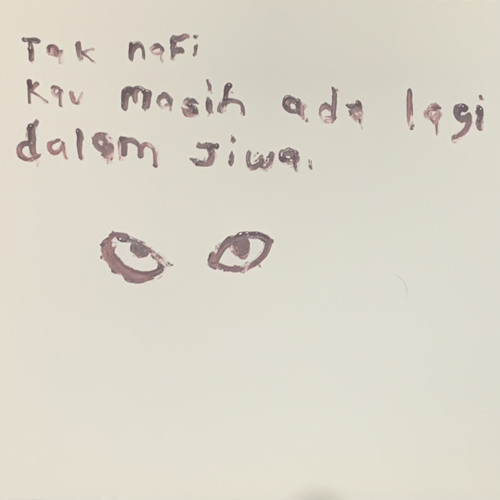 Tak nafi
Kau masih ada lagi
dalam Jiwa.